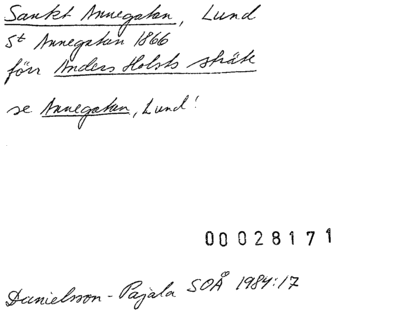 Sankt Annegatan, Lund
St Annegatan 1866
förr Anders Holsts sträte
se Annegatan, Lund!
00028171
Danielsson-Pajala SOÅ 1984:17